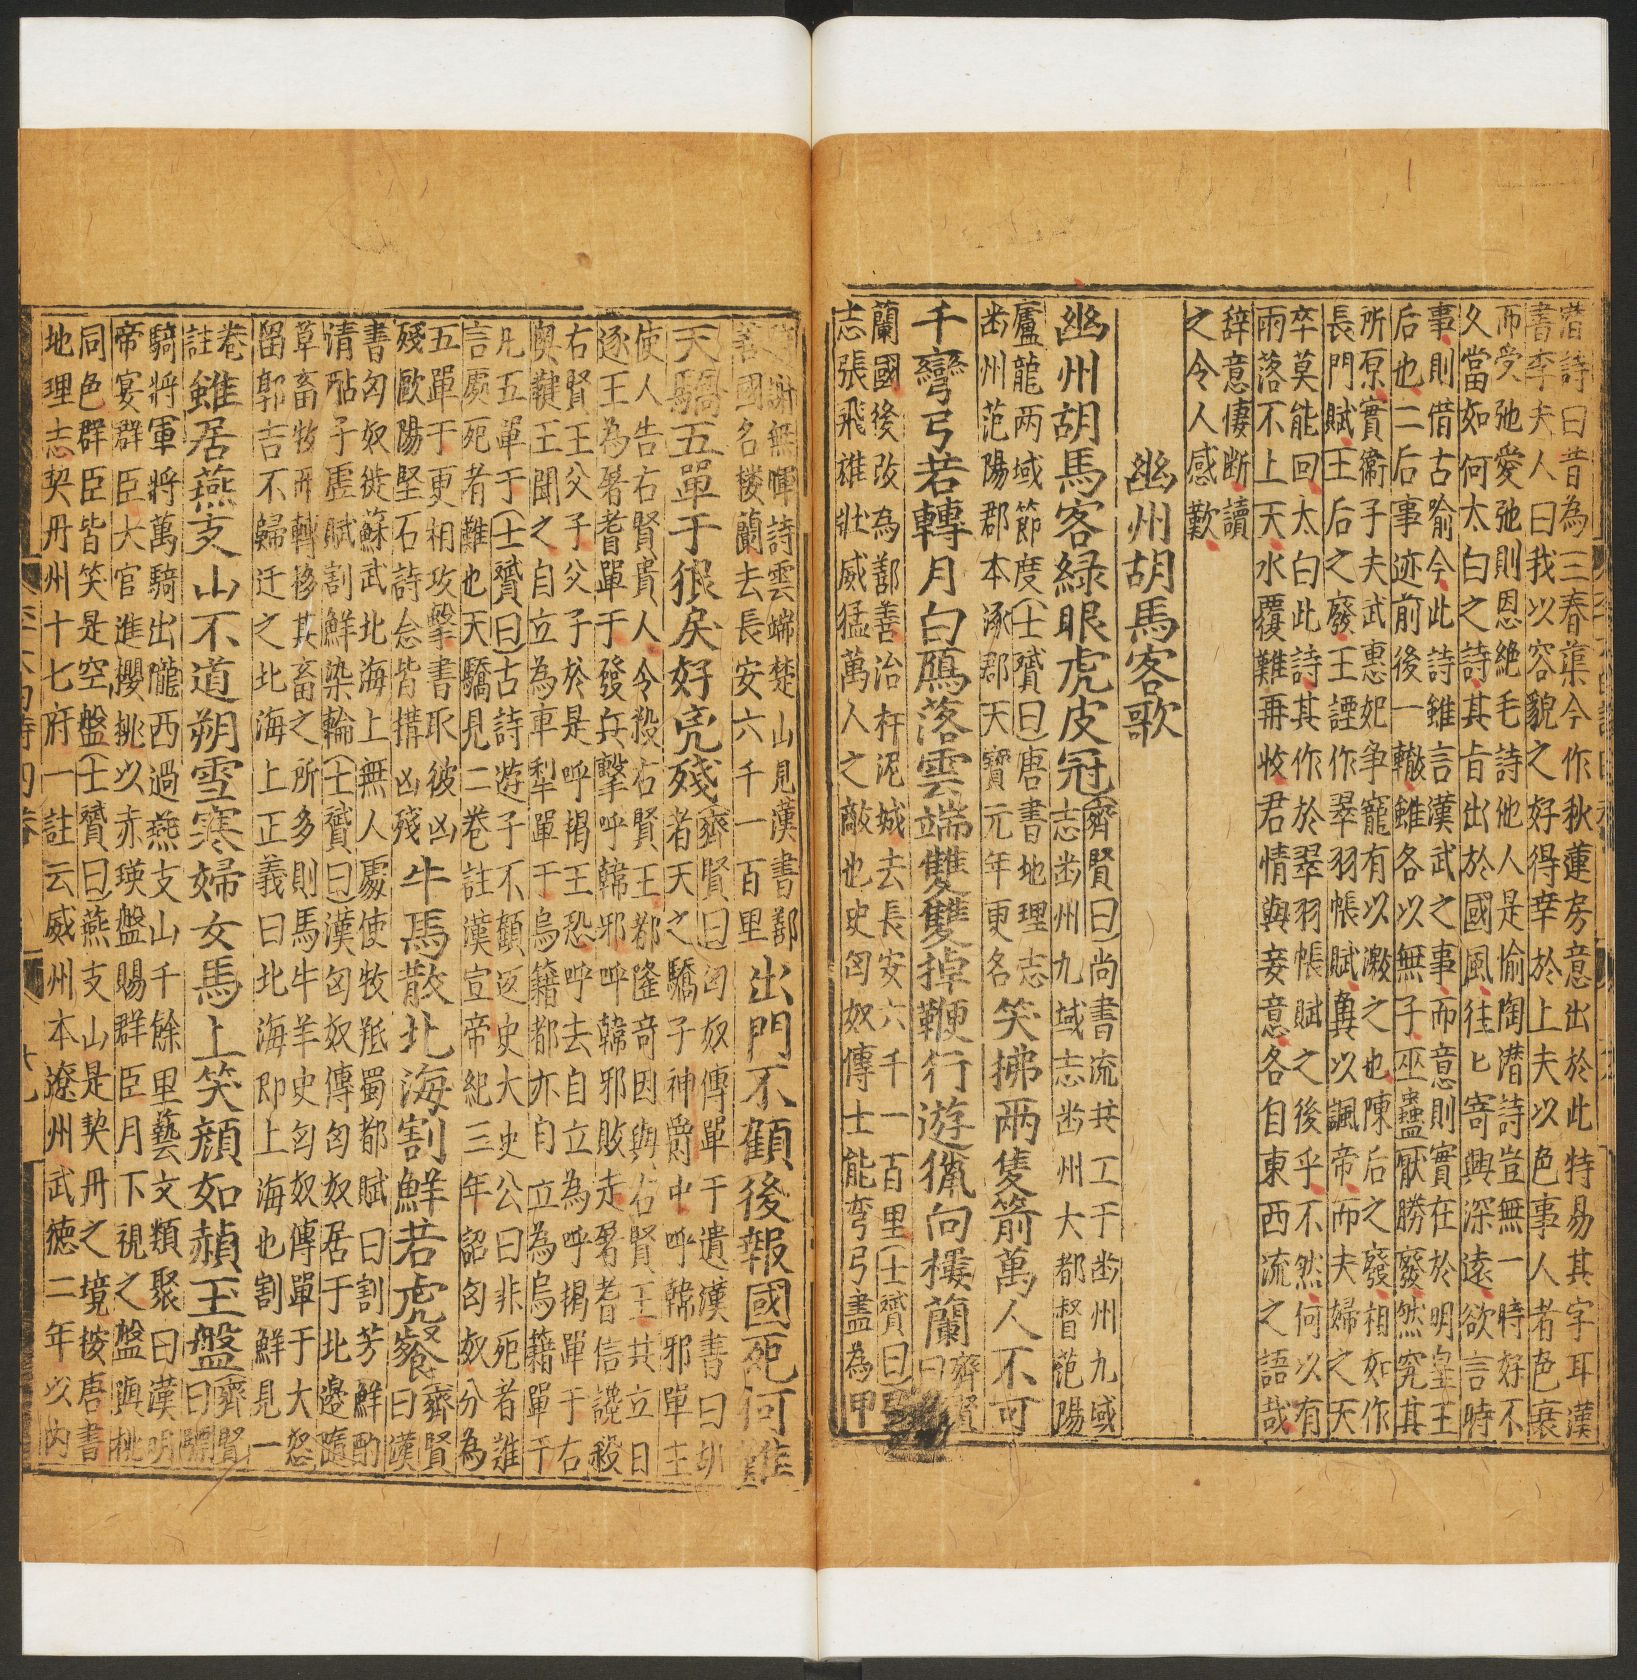 潜詩曰昔為三春蕖今作秋蓮房意出於此特易其字耳漢
書李夫人曰我以容貌之好得幸於上夫以色事人者色衰
而受弛愛弛則恩絶毛詩他人是愉陶潜詩豈無一時好不
久當如何太白之詩其旨出於國風往匕寄興深遠欲言時
事則借古喻今此詩雖言漢武之事而意則實在於明皇王
后也二后事迹前後一轍雖各以無子巫蠱厭勝廢然究其
所原實衛子夫武惠妃争寵有以激之也陳后之廢相如作
長門賦王后之廢王諲作翠羽帳賦兾以諷帝而夫婦之天
卒莫能回太白此詩其作於翠羽帳賦之後乎不然何以有
雨落不上天水覆難再收君情與妾意各自東西流之語哉
辭意悽断讀
之令人感歎
幽州胡馬客歌
幽州胡馬客緑眼虎皮冠
齊賢曰尚書流共工于幽州九域
志幽州九域志幽州大都督范陽
廬龍两域節度士贇曰唐書地理志
幽州范陽郡本涿郡天寶元年更名
笑拂兩隻箭萬人不可
千彎弓若轉月白鴈落雲端雙雙掉鞭行遊獵向樓蘭
齊賢
曰
蘭國後改為鄯善治杆泥城去長安六千一百里士贇曰
志張飛雄壯威猛萬人之敵也史匈奴傳士能弯弓盡為甲
謝無暉詩雲端楚山見漢書鄯
善國名樓蘭去長安六千一百里
出門不顧後報國死何難
天驕五單于狠戾好兇殘
齊賢曰匈奴傳單于遺漢書曰胡
者天之驕子神爵中呼韓邪單于
使人告右賢貴人令殺右賢王都隆竒因與右賢王共立日
逐王為屠耆單于發兵擊呼韓邪呼韓邪敗走屠耆信讒殺
右賢王父子父子於是呼揭王恐呼去自立為呼揭單于右
奥鞬王聞之自立為車犁單于烏籍都亦自立為烏籍單于
凡五單于士贇曰古詩遊子不顧返史太史公曰非死者難
言處死者難也天驕見二卷註漢宣帝紀三年詔匈奴分為
五單于更相攻擊書取彼凶
殘歐陽堅石詩忩皆搆凶殘
牛馬散北海割鮮若虎餐
齊賢
曰漢
書匈奴徙蘇武北海上無人處使牧羝蜀都賦曰割芳鮮酌
清酤子虚賦割鮮染輪士贇曰漢匈奴傳匈奴居于北邊隨
草畜牧而轉移其畜之所多則馬牛羊史匈奴傳單于大怒
留郭吉不歸迁之北海上正義曰北海即上海也割鮮見一
卷
註
雖居燕支山不道朔雪寒婦女馬上笑顔如赬玉盤
齊賢
曰驃
騎將軍將萬騎出隴西過燕支山千餘里藝文類聚曰漢明
帝宴群臣大官進櫻桃以赤瑛盤賜群臣月下視之盤與桃
同色群臣皆笑是空盤士贇曰燕支山是契丹之境按唐書
地理志契丹州十七府一註云威州本遼州武德二年以内